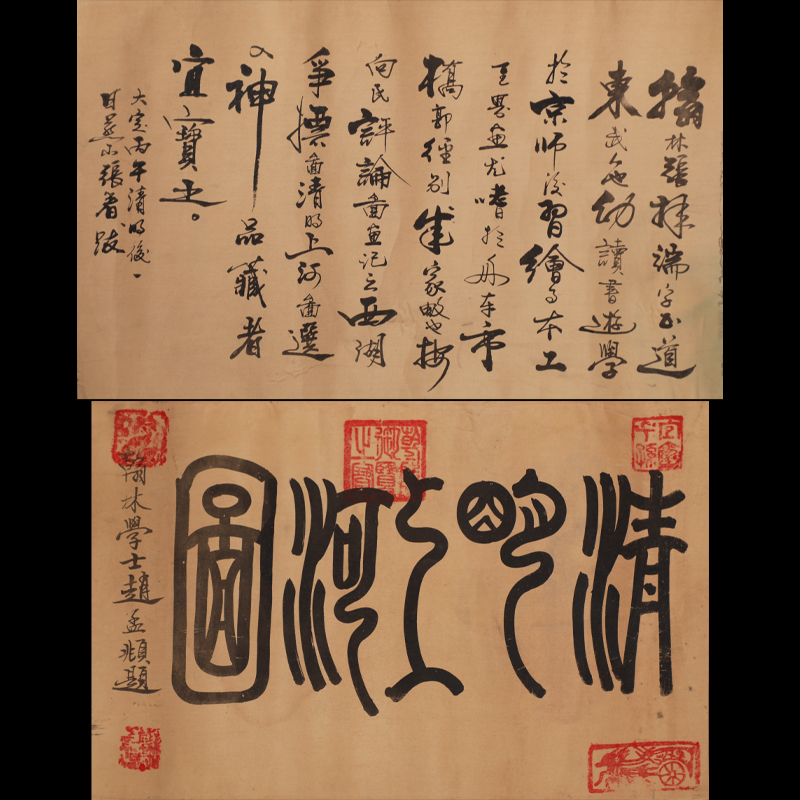 翰林張擇端字正道
東武人也幼讀書遊學
於京師後習繪事本工
其界畫尤嗜於舟車市
橋郭徑別成家數也按
向氏評論圖畫記云西湖
爭標圖清明上河圖選
入神品藏者
宜寶之。
大定丙午清明後一
日燕山張著跋
清明上河圖
乾隆御覽之寶
翰林學士趙孟頫題